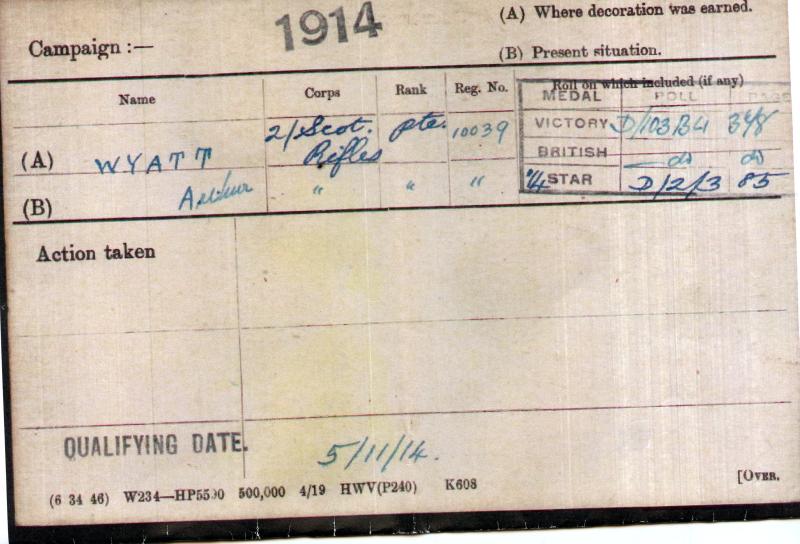 (A) Where decoration was earned.
Campaign :— 1914
(B) Present situation.
Name Corps Rank Reg. No. Roll on which included (if any)
MEDAL ROLL PAGE
(A) WYATT 2/Scot. Rifles Pte. 10039 VICTORY D/103B4 348
BRITISH do do
(B) Arthur " " " '14 STAR D/2/3 85
Action taken
QUALIFYING DATE. 5/11/14.
(6 34 46) W234—HP5590 500,000 4/19 HWV(P240) K608 [OVER.